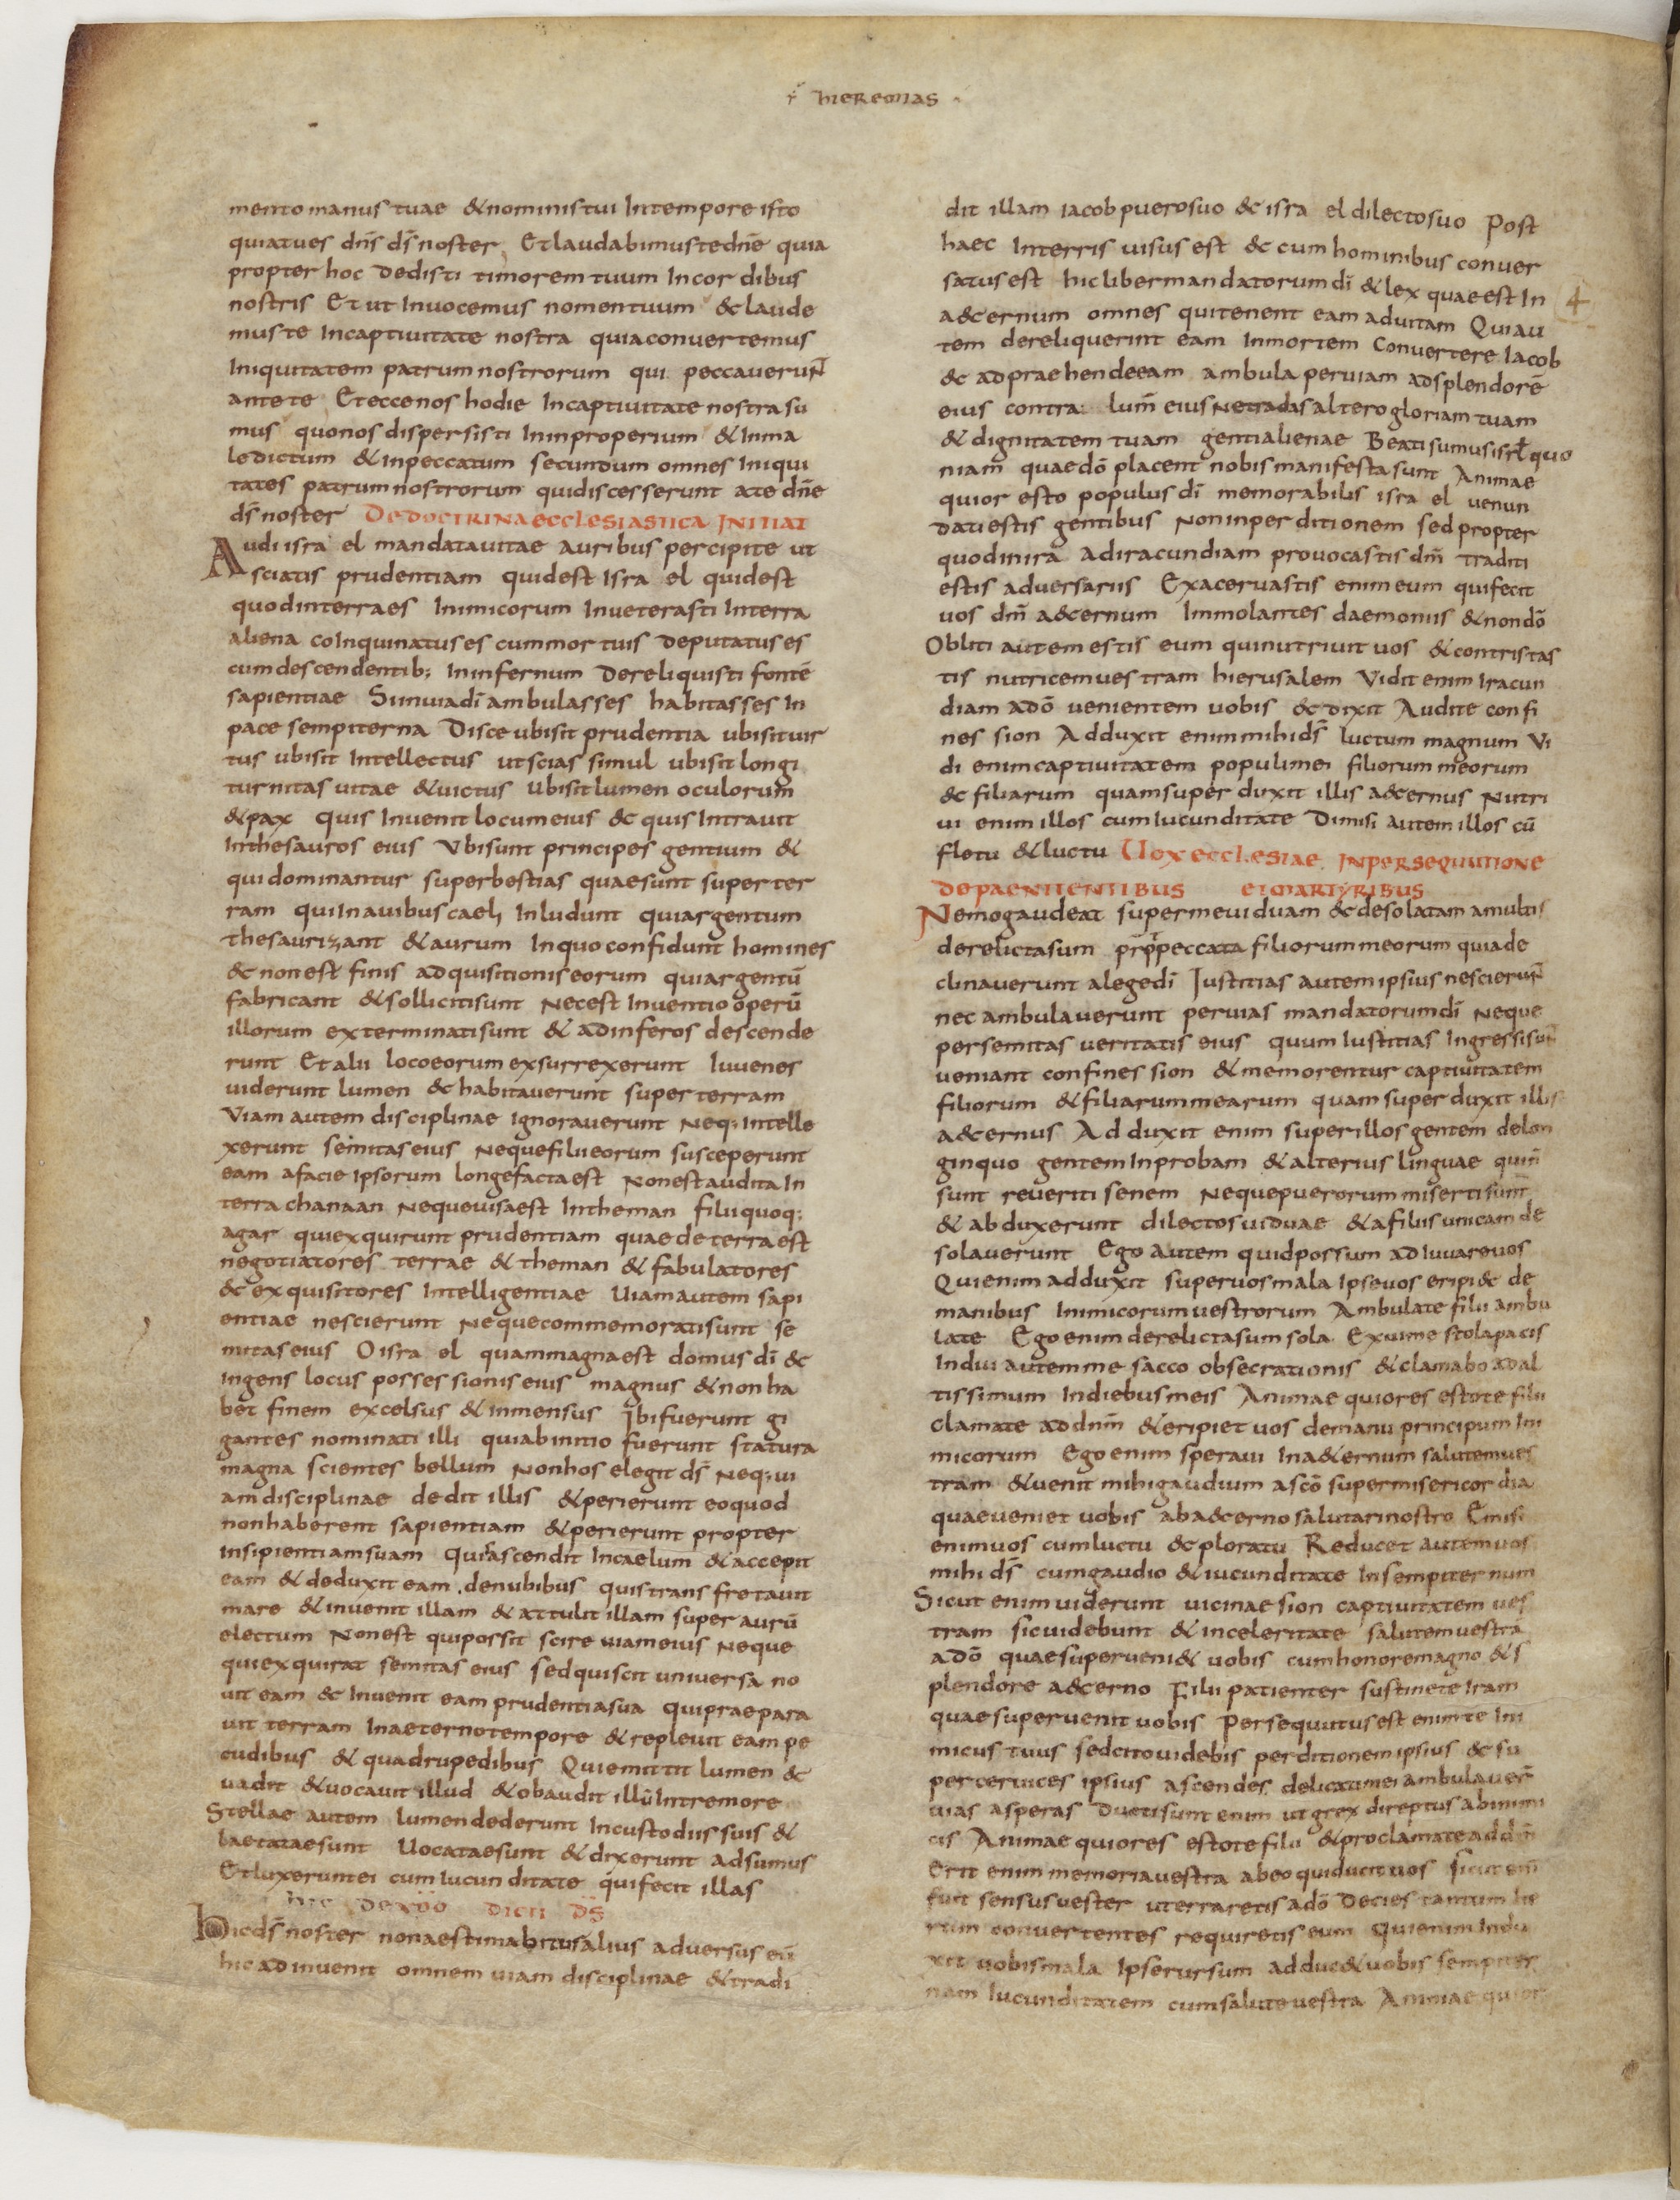 hieremias
mento manus tuae & nominis tui In tempore isto
quia tu es dn̄s d̄s noster Et laudabimus te dn̄e quia
propter hoc dedisti timorem tuum In cordibus
nostris Et ut Inuocemus nomen tuum & laude
mus te In captiuitate nostra quia conuertemus
Iniquitatem patrum nostrorum qui peccauerunt
ante te Et ecce nos hodie In captiuitate nostra su
mus quo nos dispersisti In inproperium & In ma
ledictum & in peccatum secundum omnes Iniqui
tates patrum nostrorum qui discesserunt a te dn̄e
d̄s noster De doctrina ecclesiastica Initiat
Audi isra el mandata uitae auribus percipite ut
sciatis prudentiam quid est Isra el quid est
quod in terra es Inimicorum Inueterasti In terra
aliena coInquinatus es cum mortuis deputatus es
cum descendentib; In infernum Dereliquisti fontē
sapientiae Si in uia dī ambulasses habitasses In
pace sempiterna Disce ubi sit prudentia ubi sit uir
tus ubi sit Intellectus ut scias simul ubi sit longi
turnitas uitae & uictus ubi sit lumen oculorum
& pax quis Inuenit locum eius & quis Intrauit
In thesauros eius Vbi sunt principes gentium &
qui dominantur super bestias quae sunt super ter
ram qui In auibus caeli Inludunt qui argentum
thesaurizant & aurum In quo confidunt homines
& non est finis adquisitionis eorum qui argentū
fabricant & solliciti sunt Nec est Inuentio operū
illorum exterminati sunt & ad inferos descende
runt Et alii loco eorum exsurrexerunt Iuuenes
uiderunt lumen & habitauerunt super terram
Viam autem disciplinae Ignorauerunt Neq; Intelle
xerunt semitas eius Neque filii eorum susceperunt
eam a facie Ipsorum longe facta est Non est audita In
terra chanaan Neque uisa est In theman filii quoq;
agar qui exquirunt prudentiam quae de terra est
negotiatores terrae & theman & fabulatores
& exquisitores Intelligentiae Uiam autem sapi
entiae nescierunt Neque commemorati sunt se
mitas eius O isra el quam magna est domus dī &
Ingens locus possessionis eius magnus & non ha
bet finem excelsus & inmensus Ibi fuerunt gi
gantes nominati illi qui ab initio fuerunt statura
magna scientes bellum Non hos elegit d̄s Neq; ui
am disciplinae dedit illis & perierunt eo quod
non haberent sapientiam & perierunt propter
Insipientiam suam Quis ascendit In caelum & accepit
eam & deduxit eam de nubibus quis transfretauit
mare & inuenit illam & attulit illam super aurū
electum Non est qui possit scire uiam eius Neque
qui exquirat semitas eius sed qui scit uniuersa no
uit eam & Inuenit eam prudentia sua qui praepara
uit terram In aeterno tempore & repleuit eam pe
cudibus & quadrupedibus Qui emittit lumen &
uadit & uocauit illud & obaudit illū In tremore
Stellae autem lumen dederunt In custodiis suis &
laetatae sunt Uocatae sunt & dixerunt adsumus
Et luxerunt ei cum Iucunditate qui fecit illas
hic de xp̄o dicit d̄s
Hic d̄s noster non aestimabitur alius aduersus eū
hic adinuenit omnem uiam disciplinae & tradi
dit illam Iacob puero suo & isra el dilecto suo Post
haec In terris uisus est & cum hominibus conuer
satus est hic liber mandatorum dī & lex quae est In
4
a&ernum omnes qui tenent eam ad uitam Qui au
tem dereliquerint eam In mortem Conuertere Iacob
& adpraehende eam ambula per uiam ad splendorē
eius contra lum̄ eius Ne tradas altero gloriam tuam
& dignitatem tuam genti alienae Beati sumus isrł quo
niam quae dō placent nobis manifesta sunt Animae
quior esto populus dī memorabilis isra el uenun
dati estis gentibus Non in perditionem sed propter
quod in ira ad iracundiam prouocastis dm̄ traditi
estis aduersariis Exaceruastis enim eum qui fecit
uos dm̄ a&ernum Immolantes daemoniis & non dō
Obliti autem estis eum qui nutriuit uos & contristas
tis nutricem uestram hierusalem Vidit enim Iracun
diam a dō uenientem uobis & dixit Audite confi
nes sion Adduxit enim mihi d̄s luctum magnum Vi
di enim captiuitatem populi mei filiorum meorum
& filiarum quam superduxit illis a&ernus Nutri
ui enim illos cum Iucunditate Dimisi autem illos cū
fletu & luctu Uox ecclesiae In persequutione
de paenitentibus et martyribus
Nemo gaudeat super me uiduam & desolatam a multis
derelicta sum propt peccata filiorum meorum quia de
clinauerunt a lege dī Iustitias autem ipsius nescierunt
nec ambulauerunt per uias mandatorum dī Neque
per semitas ueritatis eius quum Iustitias Ingressi sunt
ueniant confines sion & memorentur captiuitatem
filiorum & filiarum mearum quam superduxit illis
a&ernus Adduxit enim super illos gentem de lon
ginquo gentem Inprobam & alterius linguae qui n̄
sunt reueriti senem Neque puerorum miserti sunt
& abduxerunt dilectos uiduae & a filiis unicam de
solauerunt Ego autem quid possum adiuuare uos
Qui enim adduxit super uos mala Ipse uos eripi& de
manibus Inimicorum uestrorum Ambulate filii ambu
late Ego enim derelicta sum sola Exui me stola pacis
Indui autem me sacco obsecrationis & clamabo ad al
tissimum In diebus meis Animae quiores estote filii
clamate ad dnm̄ & eripiet uos de manu principum Ini
micorum Ego enim speraui In a&ernum salutem ues
tram & uenit mihi gaudium a scō super misericordia
quae ueniet uobis ab a&erno salutari nostro Emisi
enim uos cum luctu & ploratu Reducet autem uos
mihi d̄s cum gaudio & iucunditate In sempiternum
Sicut enim uiderunt uicinae sion captiuitatem ues
tram sic uidebunt & in celeritate salutem uestra
a dō quae superueni& uobis cum honore magno & s
plendore a&erno Filii patienter sustinete Iram
quae superuenit uobis Persequutus est enim te Ini
micus tuus sed cito uidebis perditionem ipsius & su
per ceruices ipsius ascendes delicati mei ambulauer̄
uias asperas Ducti sunt enim ut grex direptus ab inimi
cis Animae quiores estote filii & proclamate ad dn̄m
Erit enim memoria uestra ab eo qui ducit uos Sicut eni
fuit sensus uester ut erraretis a dō Decies tantum ite
rum conuertentes requiretis eum Qui enim Indu
xit uobis mala Ipse rursum adduc& uobis sempiter
nam Iucunditatem cum salute uestra Animae quior